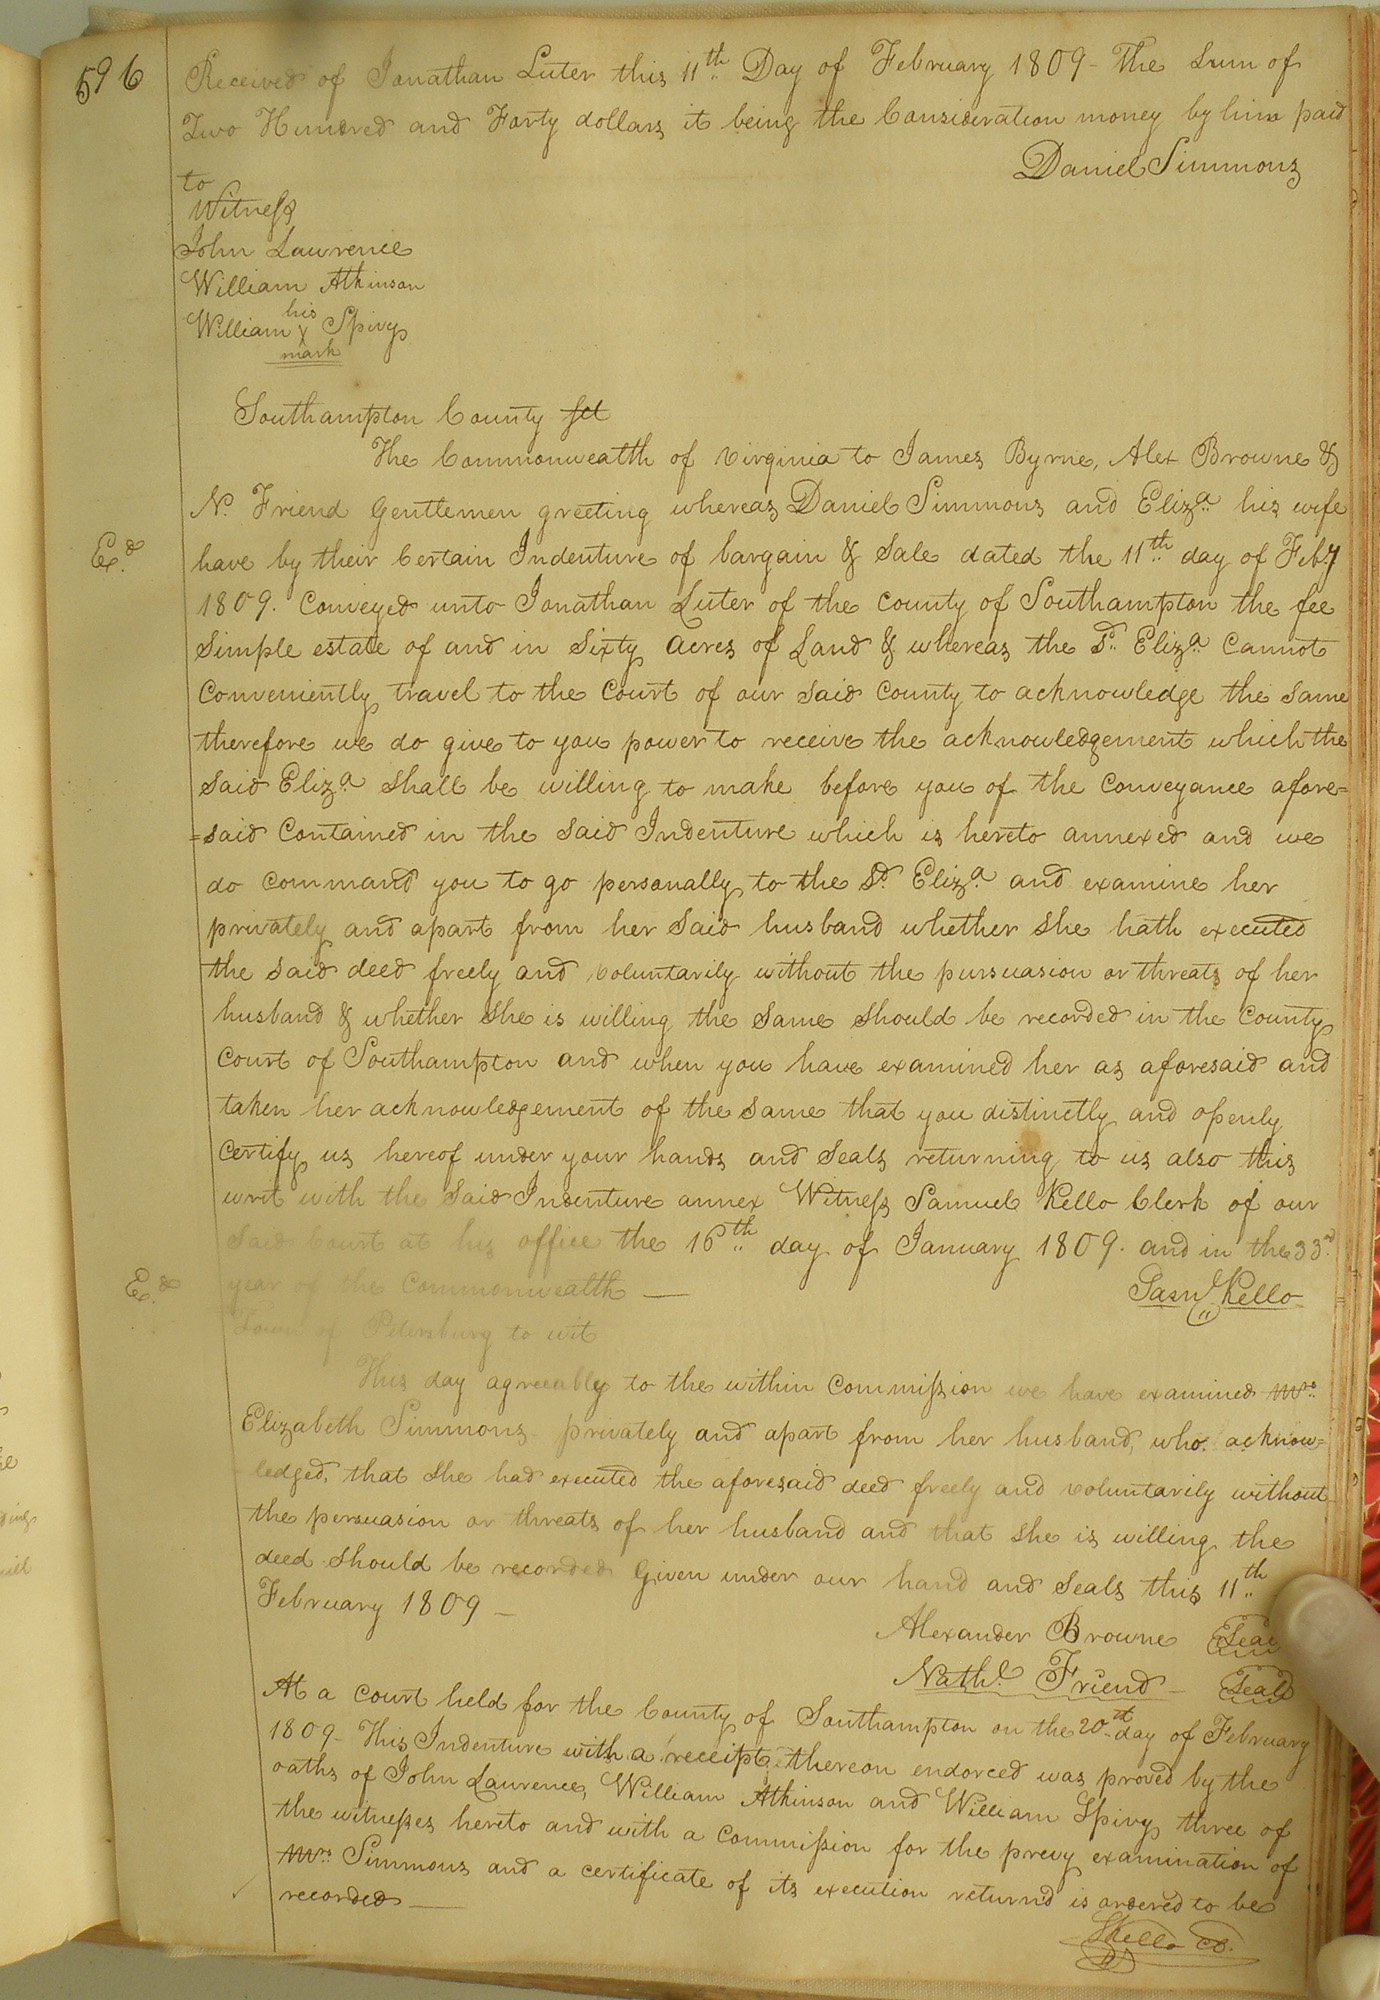 596
Received of Jonathan Luter this 11th Day of February 1809 - The Sum of
Two Hundred and Forty dollars it being the Consideration money by him paid
to
Daniel Simmons
Witness
John Lawrence
William Atkinson
his
William X Spivy
mark
Southampton County Sct
The Commonwealth of Virginia to James Byrne, Alex Browne &
N. Friend Gentlemen greeting whereas Daniel Simmons and Eliza. his wife
Ed.
have by their Certain Indenture of bargain & Sale dated the 11th day of Feby
1809. Conveyed unto Jonathan Luter of the County of Southampton the fee
Simple estate of and in Sixty acres of Land & whereas the Sd. Eliza. Cannot
Conveniently travel to the Court of our said County to acknowledge the same
therefore we do give to you power to receive the acknowledgement which the
said Eliza. shall be willing to make before you of the Conveyance afore=
=said Contained in the said Indenture which is hereto annexed and we
do command you to go personally to the Sd. Eliza. and examine her
privately and apart from her said husband whether she hath executed
the said deed freely and voluntarily without the pursuasion or threats of her
husband & whether she is willing the same should be recorded in the County
Court of Southampton and when you have examined her as aforesaid and
taken her acknowledgement of the same that you distinctly and openly
certify us hereof under your hands and Seals returning to us also this
writ with the said Indenture annex Witness Samuel Kello Clerk of our
said Court at his office the 16th day of January 1809. and in the 33rd
Ed.
year of the Commonwealth —
Saml Kello
Town of Petersburg to wit
This day agreeably to the within Commission we have examined Mrs.
Elizabeth Simmons privately and apart from her husband, who acknow=
ledged, that she had executed the aforesaid deed freely and voluntarily without
the persuasion or threats of her husband and that she is willing the
deed should be recorded Given under our hand and Seals this 11th
February 1809 —
Alexander Browne Seal
Nathl. Friend - Seal
At a Court held for the County of Southampton on the 20th day of February
1809 - This Indenture with a receipt thereon endorced was proved by the
oaths of John Laurence, William Atkinson and William Spivy three of
the witnesses hereto and with a Commission for the prevy examination of
Mrs. Simmons and a certificate of its execution returnd is ordered to be
recorded —
SKello CC.